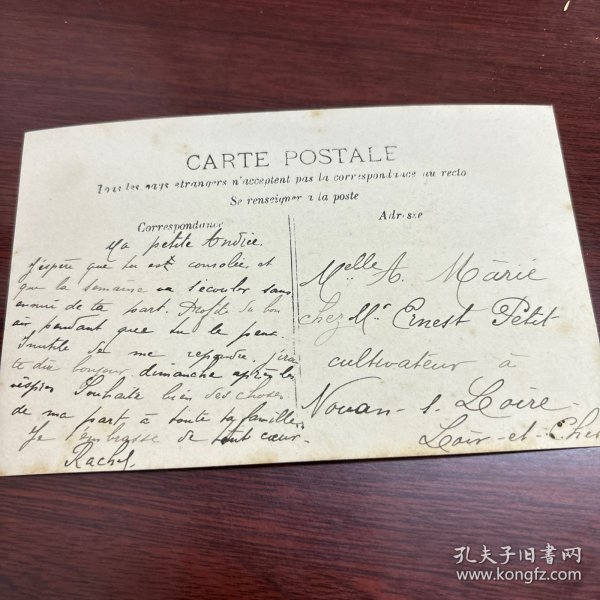 CARTE POSTALE
Tous les pays etrangers n'acceptent pas la correspondance au recto
Se renseigner a la poste
Correspondance
Adresse
Ma petite Andrée.
J'espère que tu est consolée, et
que la semaine va s'écouler sans
ennui de ta part. Profite du bon
air pendant que tu le peux.
Inutile de me repondre, j'irai
te dire bonjour dimanche après les
vêpres. Souhaite bien des choses
de ma part à toute ta famille.
Je t'embrasse de tout cœur.
Rachel.
Melle A. Marié
chez Mr Ernest Petit
cultivateur à
Nouan-s. Loire-
Loir-et-Cher
孔夫子旧书网
www.kongfz.com